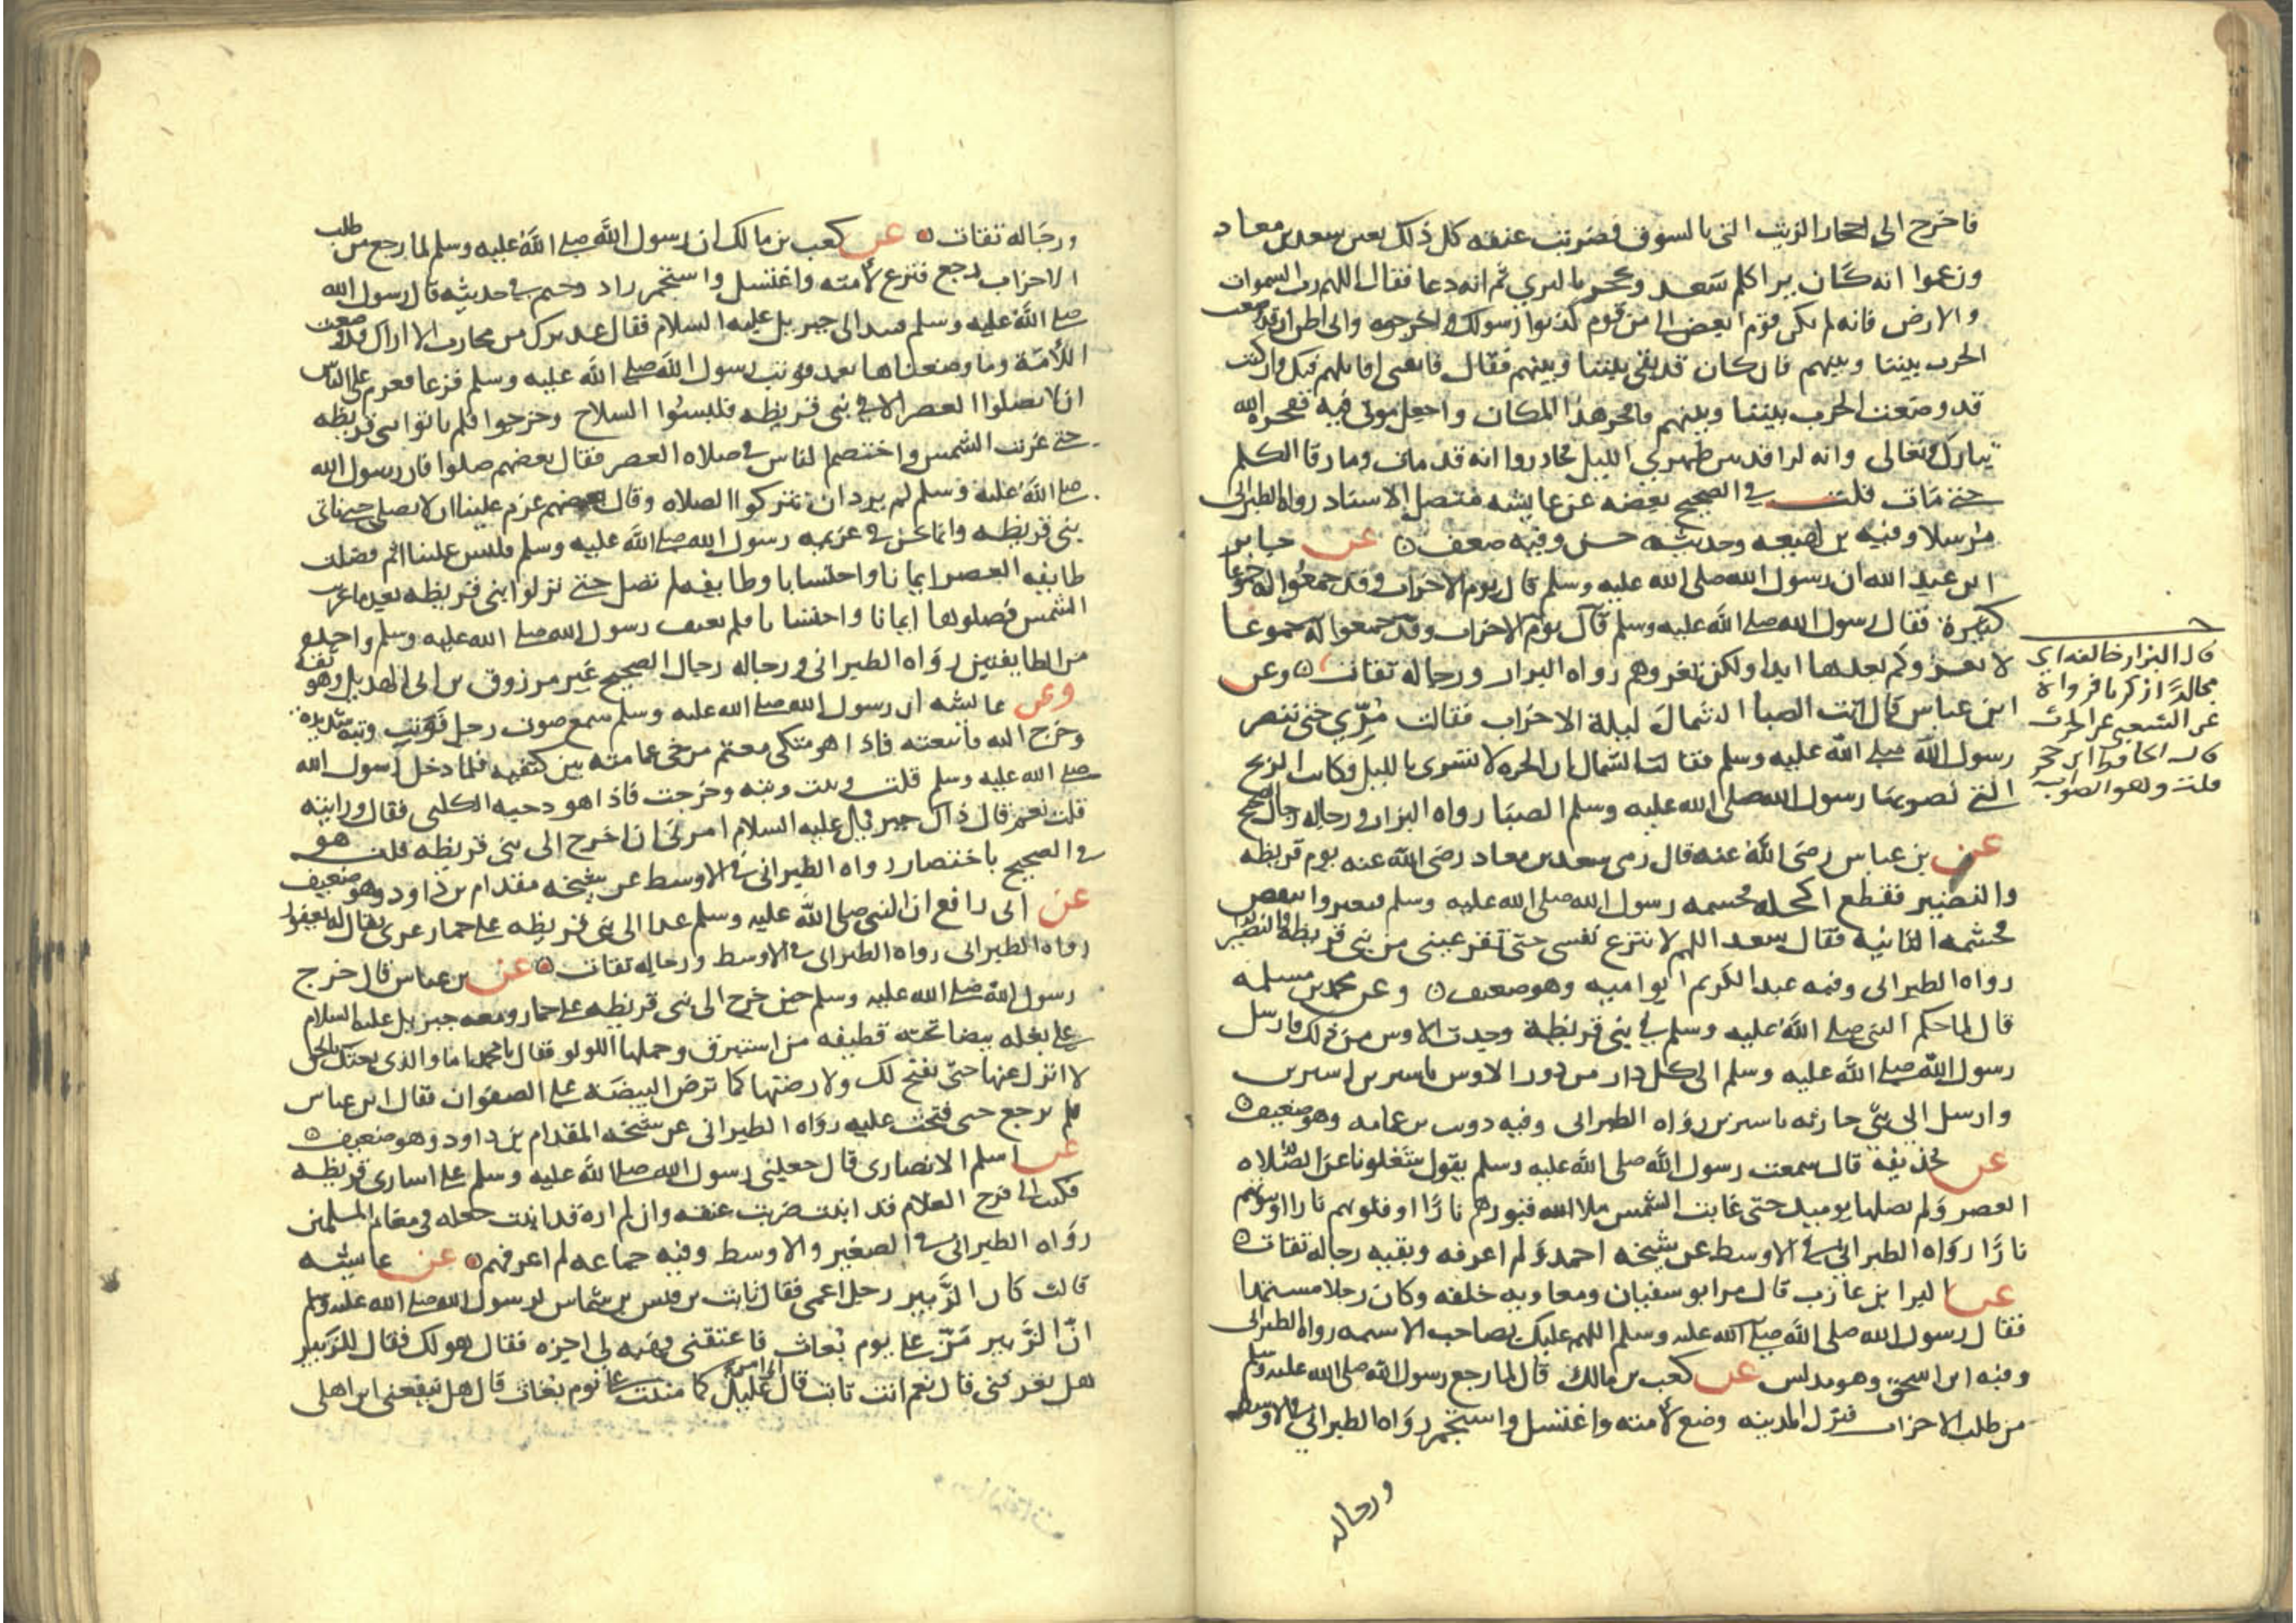 فاخرج الى احجار الزيت التى بالسوق فضربت عنقه كل ذلك بعين سعد بن معاد
وزعموا انه كان برا كلم سعد وتحجر بالبرى ثم انه دعا فقال اللهم رب السموات
والارض فانه لم يكن قوم ابغض الى من قوم كذبوا رسولك واخرجوه وانى اظن ان قد وضعت
الحرب بيننا وبينهم فان كان قد بقى بيننا وبينهم فقال فابقنى اقاتلهم فيك وان كنت
قد وضعت الحرب بيننا وبينهم فافجر هذا المكان واجعل موتى فيه ففجره الله
تبارك وتعالى وانه لراقد بين ظهرى الليل فما دروا انه قد مات وما رقا الكلم
حتى مات قلت فى الصحيح بعضه عن عايشه متصل الاسناد رواه الطبرانى
مرسلا وفيه بن لهيعه وحديثه حسن وفيه ضعف عن جابر
ابن عبد الله ان رسول الله صلى الله عليه وسلم قال يوم الاحزاب وقد جمعوا له جموعا
كثيرة فقال رسول الله صلى الله عليه وسلم قال يوم الاحزاب وقد جمعوا له جموعا
لا يغزوكم بعدها ابدا ولكن تغزوهم رواه البزار ورجاله ثقات وعن
ابن عباس قال اتت الصبا الشمال ليلة الاحزاب فقالت مرى حتى ننصر
رسول الله صلى الله عليه وسلم فقالت الشمال ان الحره لا تسرى بالليل فكانت الريح
التى نصر بها رسول الله صلى الله عليه وسلم الصبا رواه البزار ورجاله رجال الصحيح
عن بن عباس رضى الله عنه قال رمى سعد بن معاد رضى الله عنه يوم قريظه
والنضير فقطع اكحله فحسمه رسول الله صلى الله عليه وسلم
فحسمه الثانيه فقال سعد اللهم لا تنزع نفسى حتى تقر عينى من بنى قريظه والنضير
رواه الطبرانى وفيه عبد الكريم ابو اميه وهو ضعيف وعن محمد بن مسلمه
قال لما حكم النبى صلى الله عليه وسلم فى بنى قريظة وجدت الاوس من ذلك فارسل
رسول الله صلى الله عليه وسلم الى كل دار من دور الاوس باسيرين اسيرين
وارسل الى بنى حارثه باسيرين رواه الطبرانى وفيه وهو ضعيف
عن حذيفة قال سمعت رسول الله صلى الله عليه وسلم يقول شغلونا عن الصلاه صلاة
العصر ولم يصلها يوميد حتى غابت الشمس ملا الله قبورهم نارا او قلوبهم نارا او بيوتهم
نارا رواه الطبرانى فى الاوسط عن شيخه احمد ولم اعرفه وبقيه رجاله ثقات
عن البرا بن عازب قال مر ابو سفيان ومعاويه خلفه وكان رجلا مستها
فقال رسول الله صلى الله عليه وسلم اللهم عليك بصاحب الاسته رواه الطبرانى
وفيه ابن اسحق وهو مدلس عن كعب بن مالك قال لما رجع رسول الله صلى الله عليه وسلم
من طلب الاحزاب فنزل المدينه وضع لأمته واغتسل واستجمر رواه الطبرانى فى الاوسط
ورجاله
قال البزار خالفه اى
مجالدا زكريا فرواه
عن الشعبى عن الحرث
قال الحافظ ابن حجر
قلت وهو الصواب
ورجاله ثقات عن كعب بن مالك ان رسول الله صلى الله عليه وسلم لما رجع من طلب
الاحزاب رجع فنزع لأمته واغتسل واستجمر زاد دحيم فى حديثه قال رسول الله
صلى الله عليه وسلم فبدا لى جبريل عليه السلام فقال عديرك من محارب الا اراك قد وضعت
اللأمة وما وضعناها بعد فوثب رسول الله صلى الله عليه وسلم فزعا فعزم على الناس
ان لا يصلوا العصر الا فى بنى قريظه فلبسوا السلاح وخرجوا فلم ياتوا بنى قريظه
حتى غربت الشمس واختصم الناس فى صلاه العصر فقال بعضهم صلوا فان رسول الله
صلى الله عليه وسلم لم يرد ان تتركوا الصلاه وقال بعضهم عزم علينا ان لا نصلى حتى ناتى
بنى قريظه وانما نحن فى عزيمه رسول الله صلى الله عليه وسلم فليس علينا اثم فصلت
طايفه العصر ايمانا واحتسابا وطايفه لم تصل حتى نزلوا بنى قريظه بعد ما غربت
الشمس فصلوها ايمانا واحتسابا فلم يعنف رسول الله صلى الله عليه وسلم واحده
من الطايفتين رواه الطبرانى ورجاله رجال الصحيح غير مرزوق بن ابى الهديل وهو ثقة
وعن عايشه ان رسول الله صلى الله عليه وسلم سمع صوت رجل فوثب وثبه شديده
وخرج اليه فاتبعته فاذا هو متكى معتم مرخى عمامته بين كتفيه فلما دخل رسول الله
صلى الله عليه وسلم قلت وثبت وثبه وخرجت فاذا هو دحيه الكلبى فقال ورايتيه
قلت نعم قال ذاك جبريل عليه السلام امرنى ان اخرج الى بنى قريظه قلت هو
فى الصحيح باختصار رواه الطبرانى فى الاوسط عن شيخه مقدام بن داود وهو ضعيف
عن ابى رافع ان النبى صلى الله عليه وسلم غدا الى بنى قريظه على حمار عرى يقال له يعفور
رواه الطبرانى رواه الطبرانى فى الاوسط ورجاله ثقات عن بن عباس قال خرج
رسول الله صلى الله عليه وسلم حين خرج الى بنى قريظه على حمار ومعه جبريل عليه السلام
على بغله بيضا تحته قطيفه من استبرق وحملها اللولو فقال يا محمد اما والذى بعثك بالحق
لا انزل عنها حتى تفتح لك ولارضنها كما ترض البيضة على الصفوان فقال ابن عباس
فلم يرجع حتى فتحت عليه رواه الطبرانى عن شيخه المقدام بن داود وهو ضعيف
عن اسلم الانصارى قال جعلنى رسول الله صلى الله عليه وسلم على اسارى قريظه
فكنت الى فرج الغلام قد انبت ضربت عنقه وان لم اره قد انبت جعله فى مغانم المسلمين
رواه الطبرانى فى الصغير والاوسط وفيه جماعه لم اعرفهم عن عايشه
قالت كان الزبير رجل اعمى فقال ثابت بن قيس بن شماس لرسول الله صلى الله عليه وسلم
ان الزبير من على يوم بعاث فاعتقنى فهبه لى اجزه فقال هو لك فقال للزبير
هل تعرفنى قال نعم انت ثابت قال كما مننت على يوم بعاث قال هل ينفعنى اين اهلى